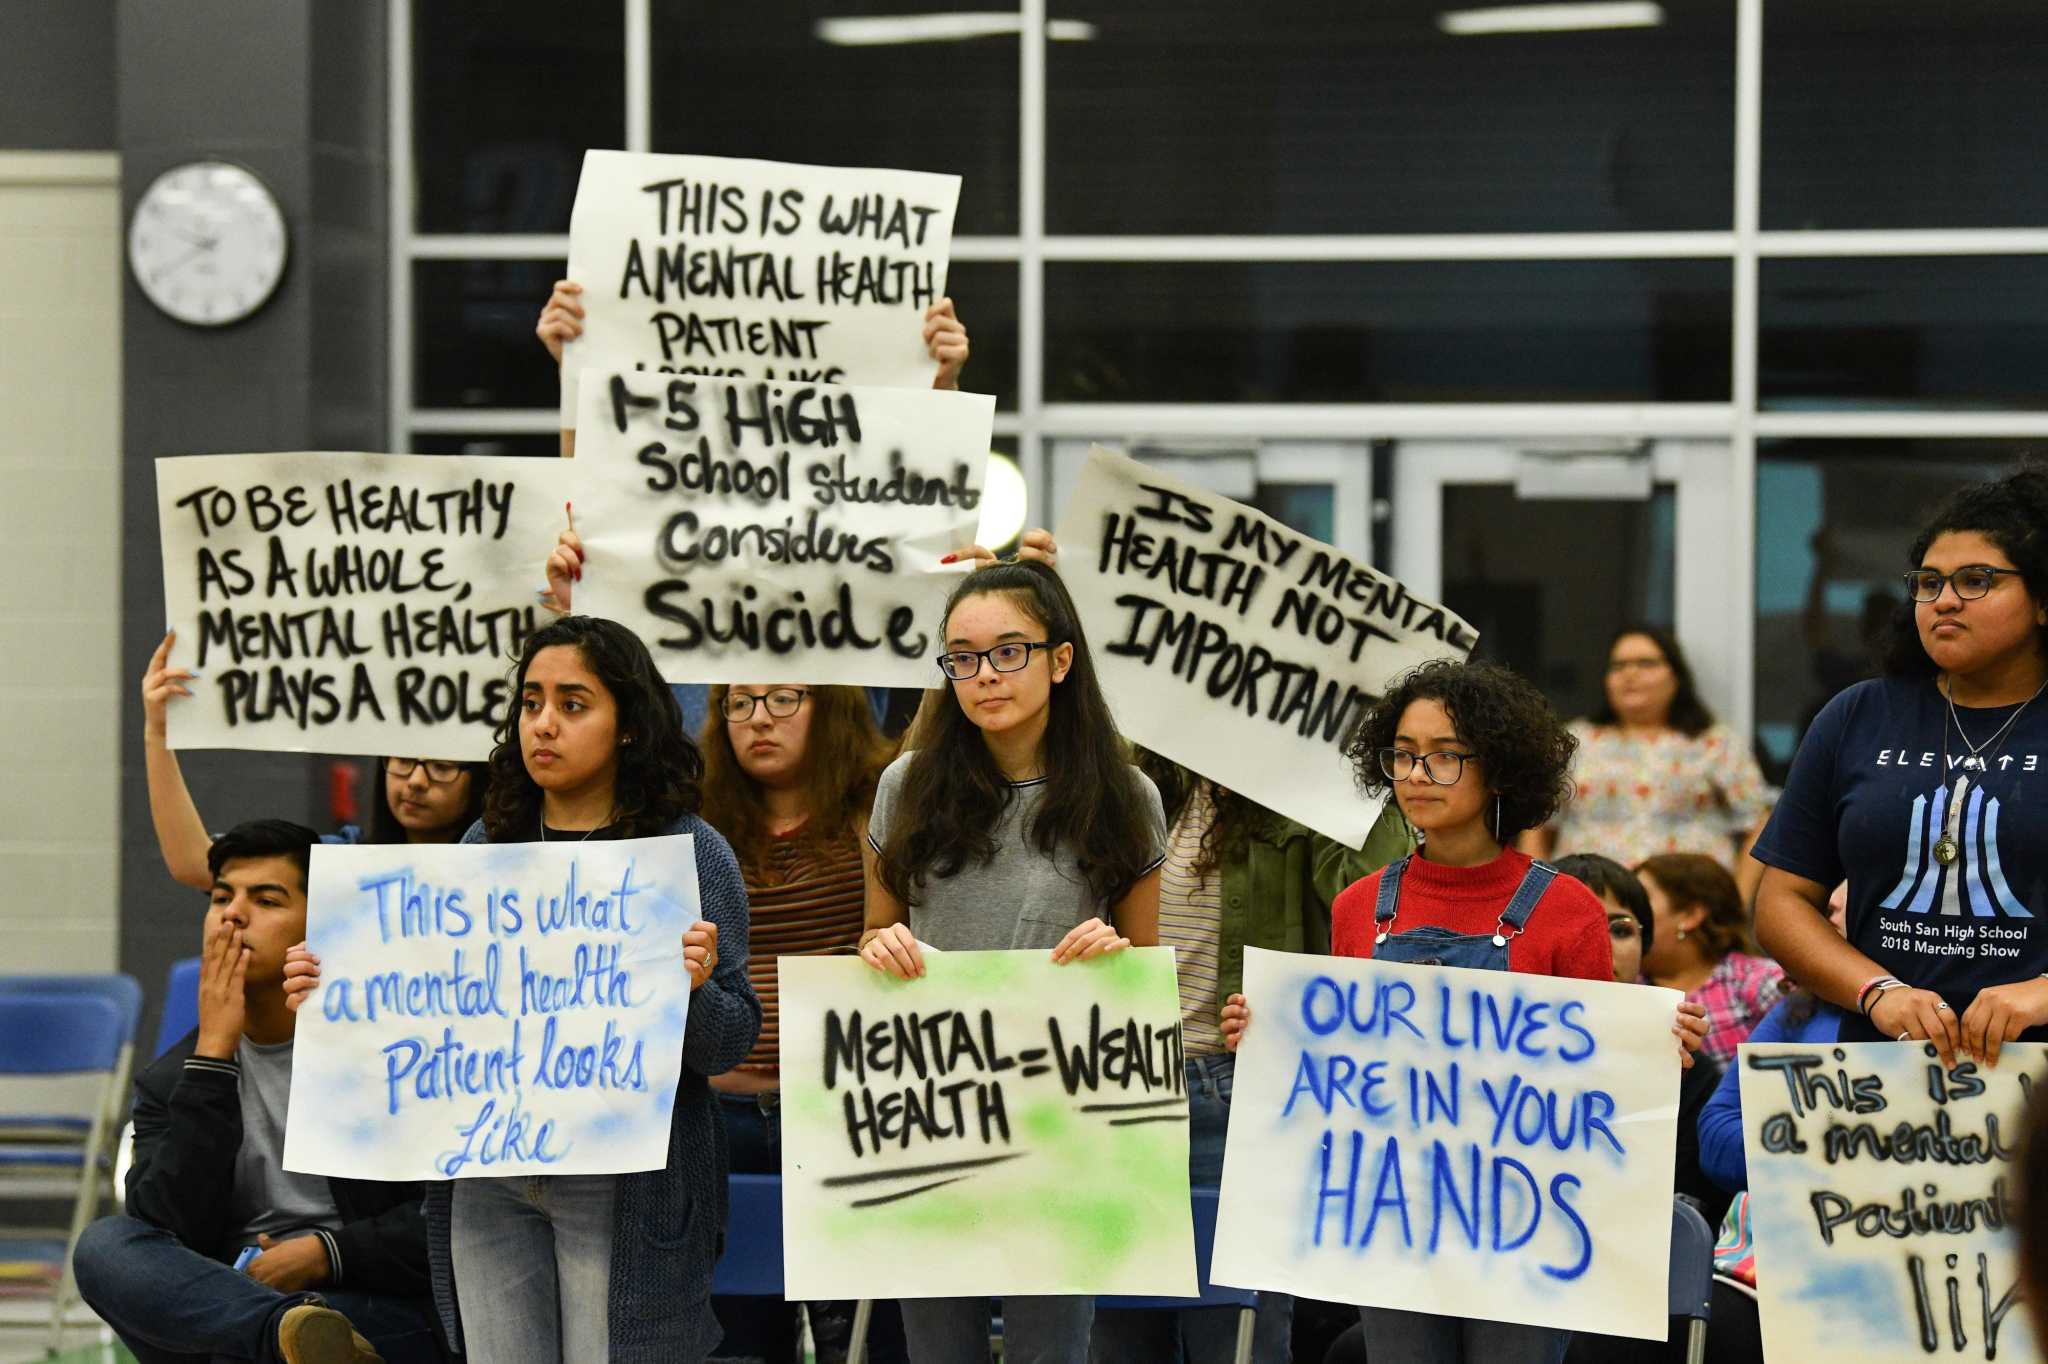 THIS IS WHAT
A MENTAL HEALTH
PATIENT
LOOKS LIKE
1-5 HiGH
School Student
Considers
Suicide
TO BE HEALTHY
AS A WHOLE,
MENTAL HEALTH
PLAYS A ROLE
IS MY MENTAL
HEALTH NOT
IMPORTANT
This is what
a mental health
Patient looks
Like
MENTAL = WEALTH
HEALTH
OUR LIVES
ARE IN YOUR
HANDS
ELEVATE
South San High School
2018 Marching Show
This is
a mental
Patient
lik